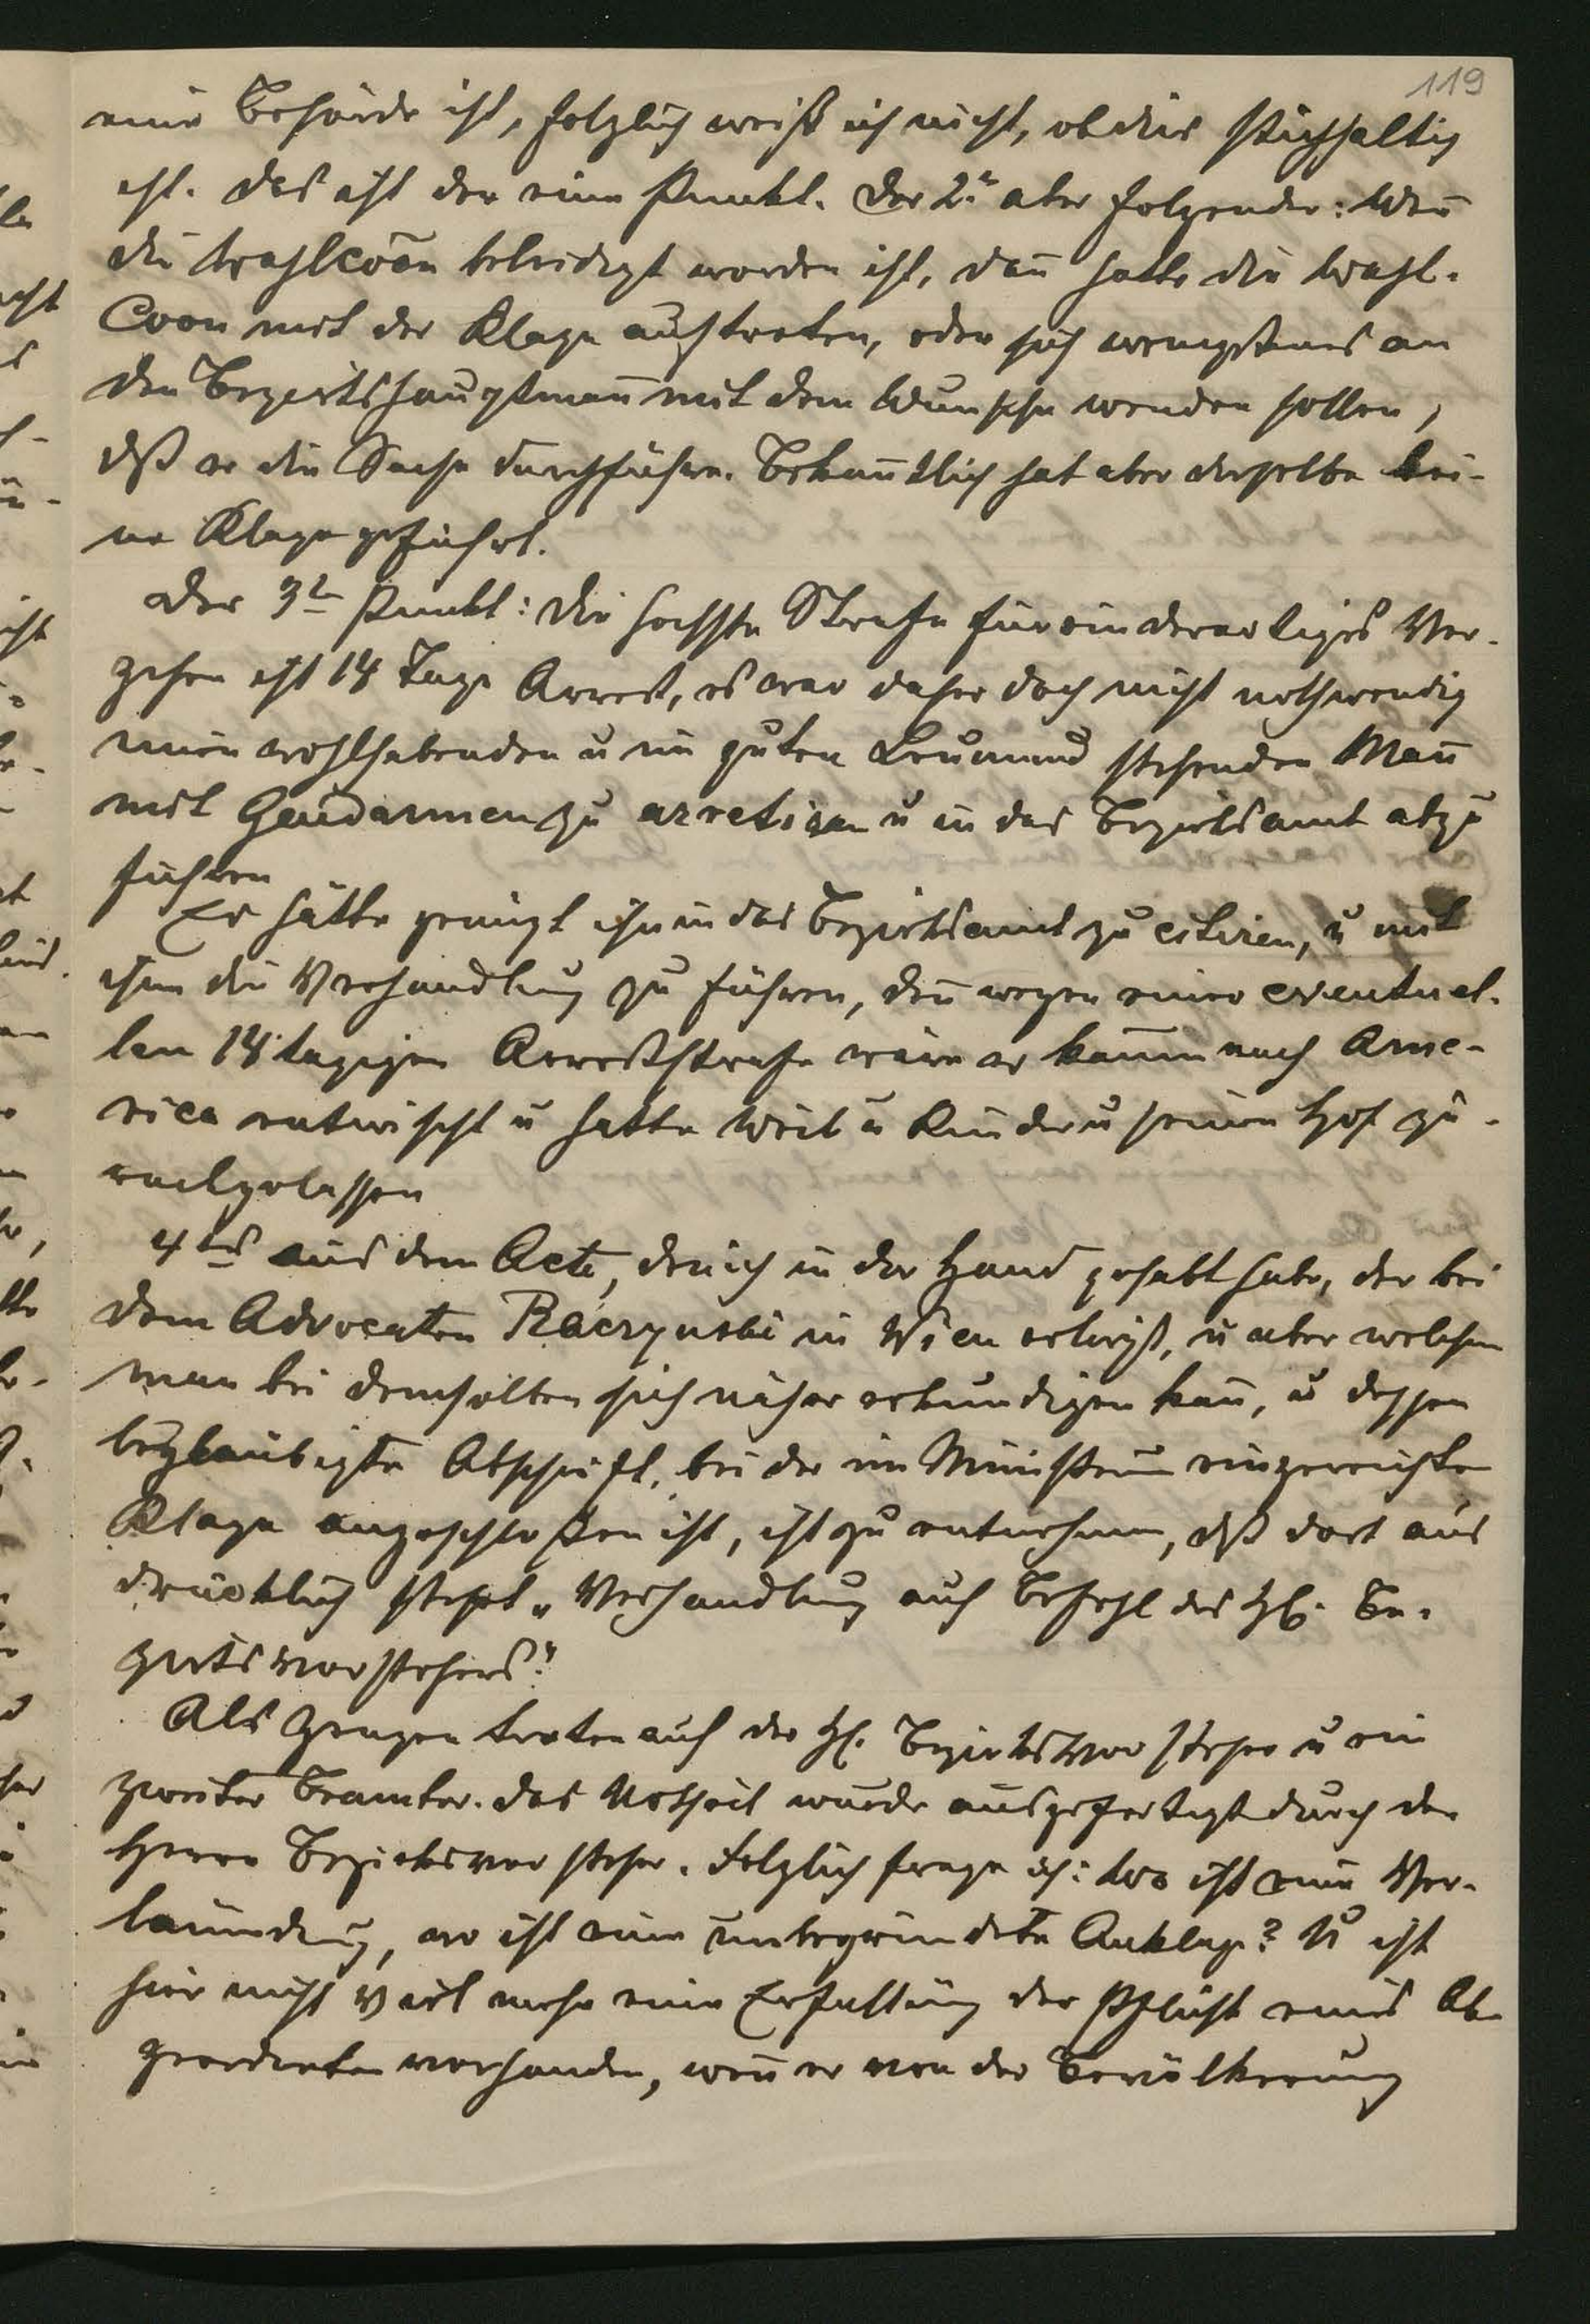 119
eine Behörde ist, folglich weiß ich nicht, ob dies stichhaltig
ist. Das ist der eine Punkt. Der 2te aber folgender: Weñ
die Wahlcoõn beleidigt worden ist, dañ hätte die Wahl-
Coon mit der Klage auftreten, oder sich wenigstens an
den Bezirkshauptmañ mit dem Wunsche wenden sollen,
dß er die Sache durchführe. Bekañtlich hat aber derselbe kei-
ne Klage geführt.
Der 3te Punkt: Die höchste Strafe für ein derartiges Ver-
gehen ist 14 Tage Arrest, es war daher doch nicht nothwendig
einen wohlhabenden u im guten Leumund stehenden Mañ
mit Gendarmen zu arretiren u in das Bezirksamt abzu
führen
Es hätte genügt ihn in das Bezirksamt zu citiren, u mit
ihm die Verhandlung zu führen, deñ wegen einer eventuel-
len 14 tägigen Arreststrafe wäre er kaum nach Ame-
rica entwischt u hätte Weib u Kinder u seinen Hof zu-
rückgelassen
4tens aus dem Acte, den ich in der Hand gehabt habe, der bei
dem Advocaten Raczynski in Wien erliegt, u über welchen
man bei demselben sich näher erkundigen kañ, u dessen
beglaubigte Abschrift, bei der im Ministerium eingereichten
Klage angeschloßen ist, ist zu entnehmen, dß dort aus
drücklich steht „Verhandlung auf Befehl des H. Be-
zirksvorstehers“
Als Zeugen traten auf der H. Bezirksvorsteher u ein
zweiter Beamter. Das Urtheil wurde ausgefertigt durch den
Herrn Bezirksvorsteher. Folglich frage ich: wo ist eine Ver-
läumdung, wo ist eine unbegründete Anklage? U ist
hier nicht viel mehr eine Erfüllung der Pflicht eines Ab-
geordneten vorhanden, weñ er von der Bevölkerung